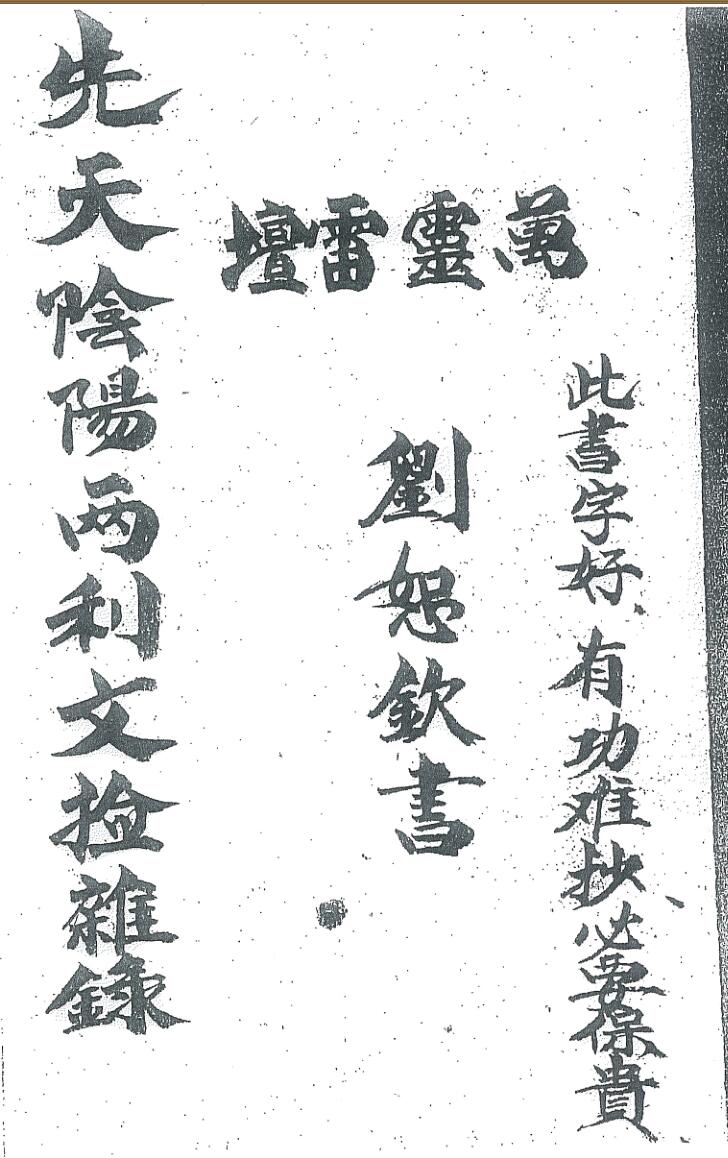 此書字好、有功难抄、必要保貴
萬靈雷壇
劉恕欽書
先天陰陽两利文捡雜録